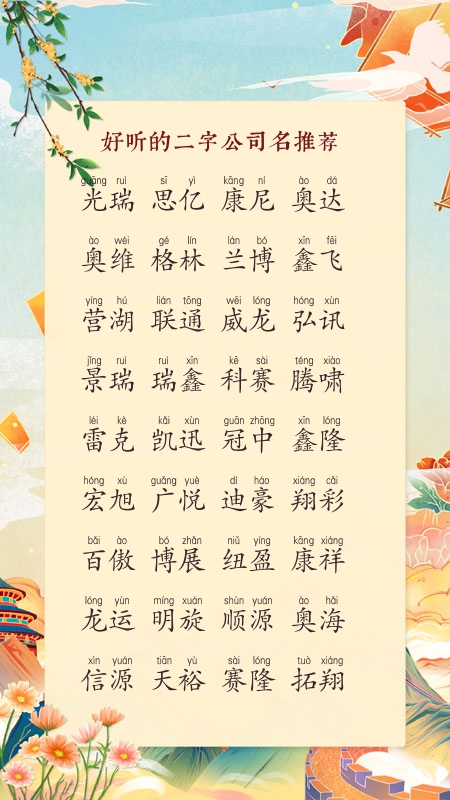 好听的二字公司名推荐
guāng ruì sī yì kāng ní ào dá
光瑞 思亿 康尼 奥达
ào wéi gé lín lán bó xīn fēi
奥维 格林 兰博 鑫飞
yíng hú lián tōng wēi lóng hóng xùn
营湖 联通 威龙 弘讯
jǐng ruì ruì xīn kē sài téng xiào
景瑞 瑞鑫 科赛 腾啸
léi kè kǎi xùn guān zhōng xīn lóng
雷克 凯迅 冠中 鑫隆
hóng xù guǎng yuè dí háo xiáng cǎi
宏旭 广悦 迪豪 翔彩
bǎi ào bó zhǎn niǔ yíng kāng xiáng
百傲 博展 纽盈 康祥
lóng yùn míng xuán shùn yuán ào hǎi
龙运 明旋 顺源 奥海
xìn yuán tiān yù sài lóng tuò xiáng
信源 天裕 赛隆 拓翔